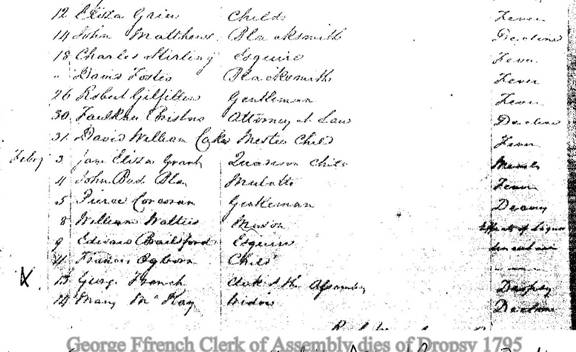 12 Eliza Grier Child Fever
14 John Matthews Blacksmith Decline
18 Charles Stirling Esquire Fever
" David Foster Blacksmith Fever
26 Robert Gilfillan Gentleman Fever
30 Attorney at Law Decline
31 David William Mestee Child Fever
Feby 3 Jane Eliza Grant Quadroon Child
4 John Mulatto Fever
5 Pierce Corcoran Gentleman
8 William Mason of
9 Edward Brailsford Esquire
11 Francis Child
X 13 George Ffrench Clerk of the Assembly Dropsy
14 Mary Widow Decline
George Ffrench Clerk of Assembly dies of Dropsy 1795